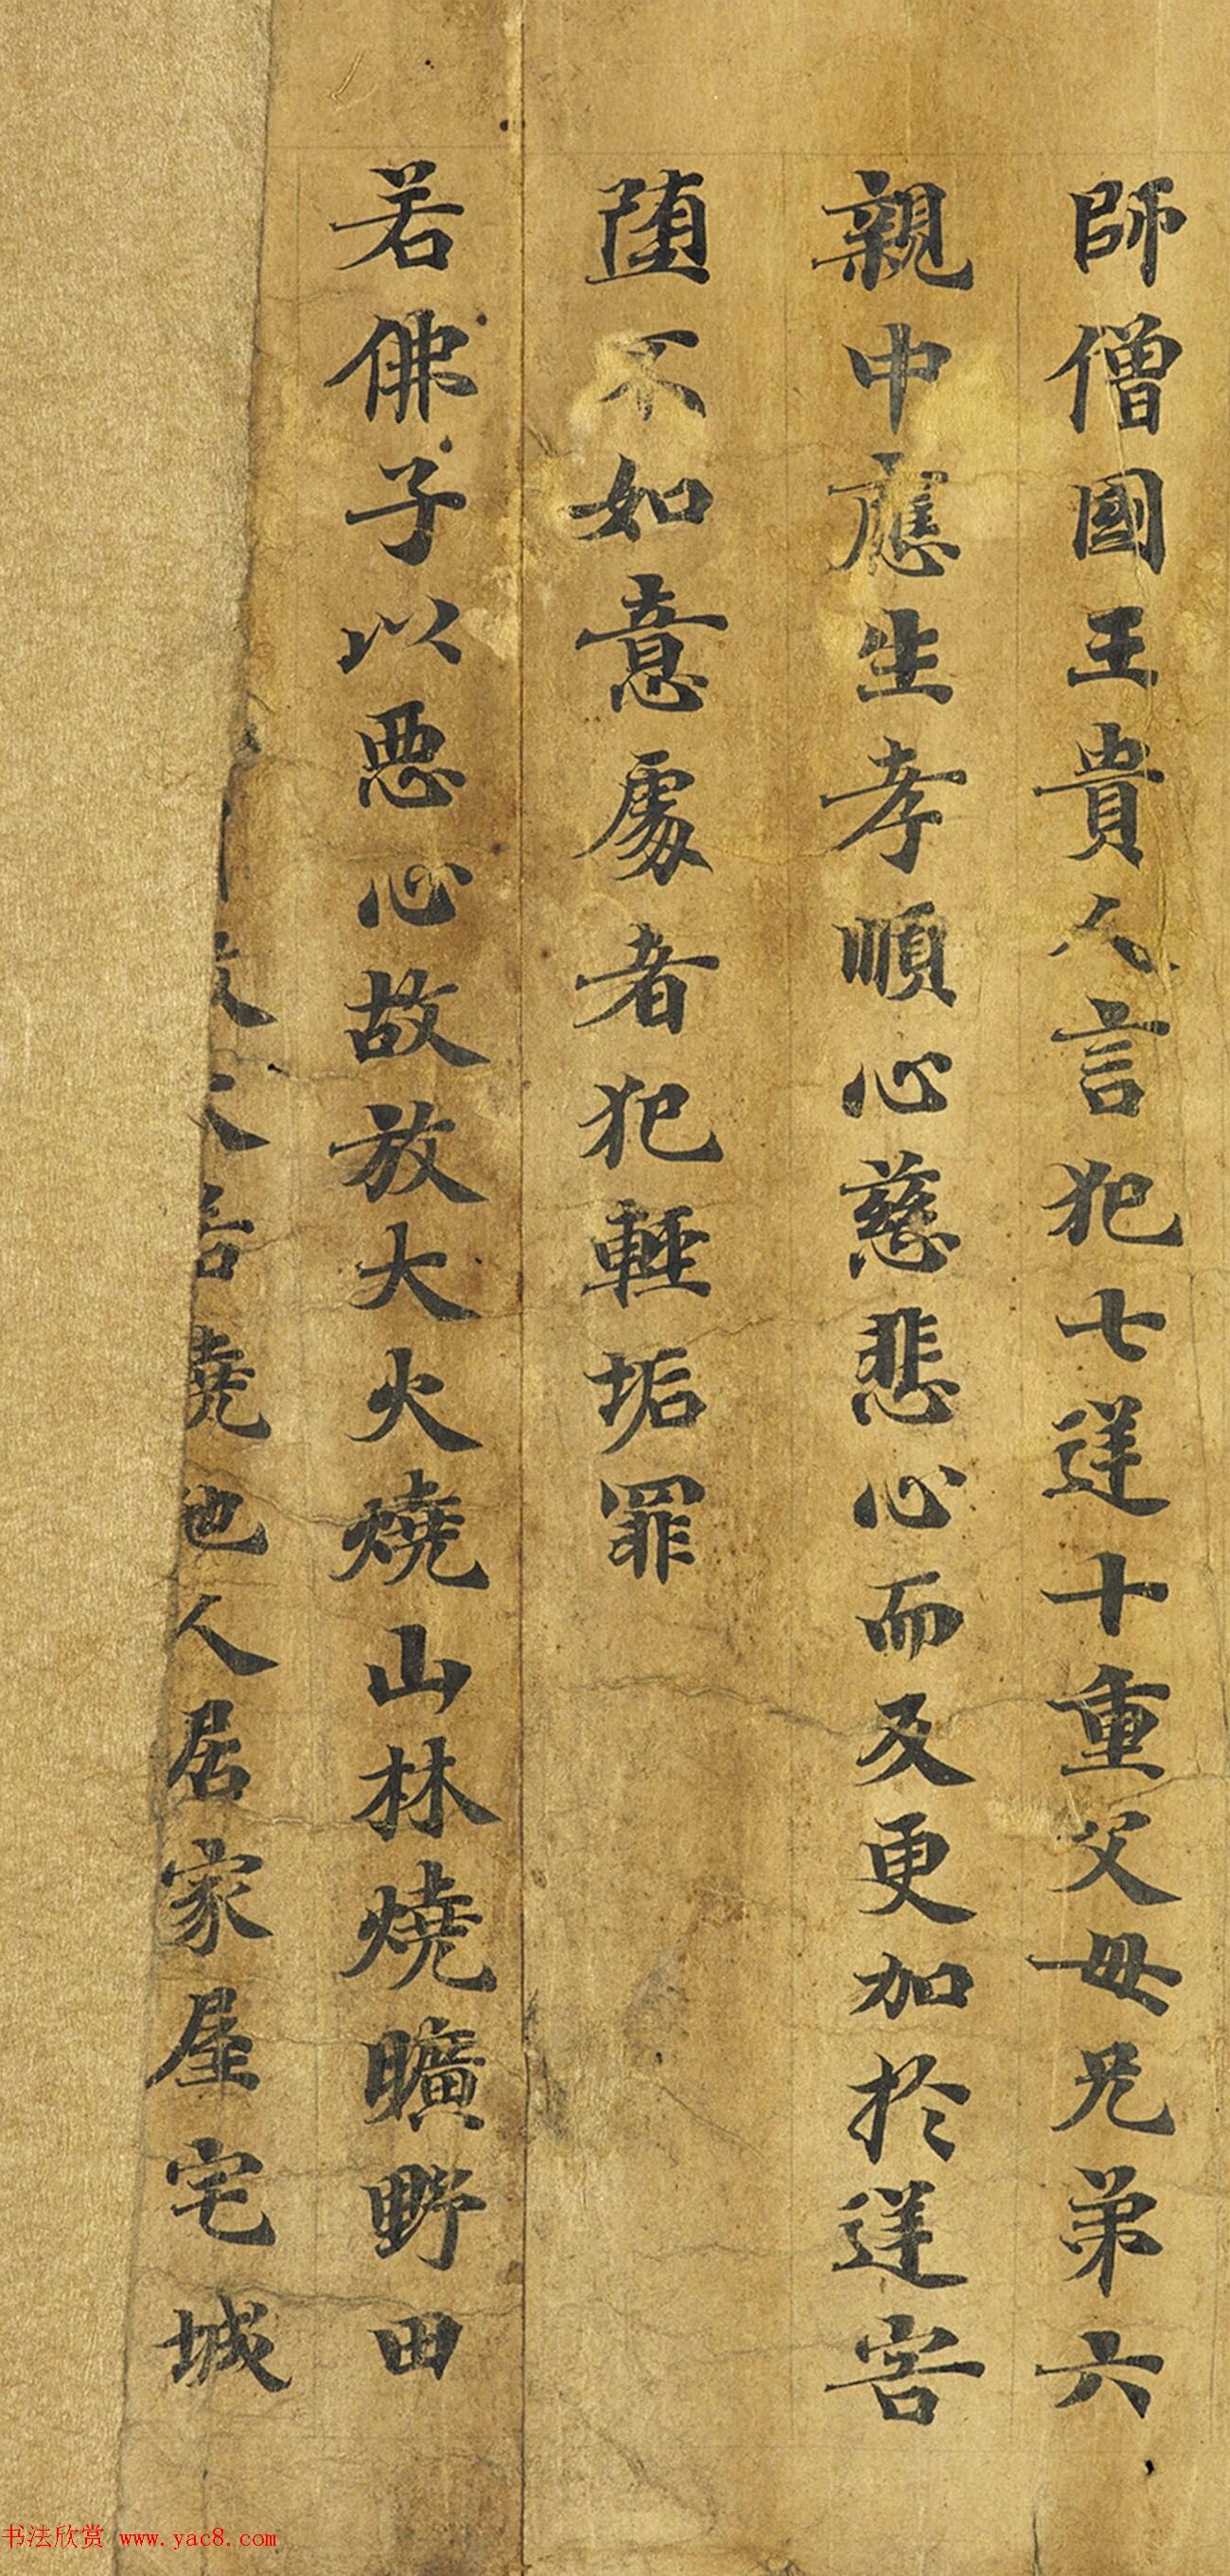 師僧國王貴人言犯七逆十重父母兄弟六
親中應生孝順心慈悲心而反更加於逆害
堕不如意處者犯輕垢罪
若佛子以惡心故放大火燒山林燒曠野田
燒他人居家屋宅城
书法欣赏 www.yac8.com